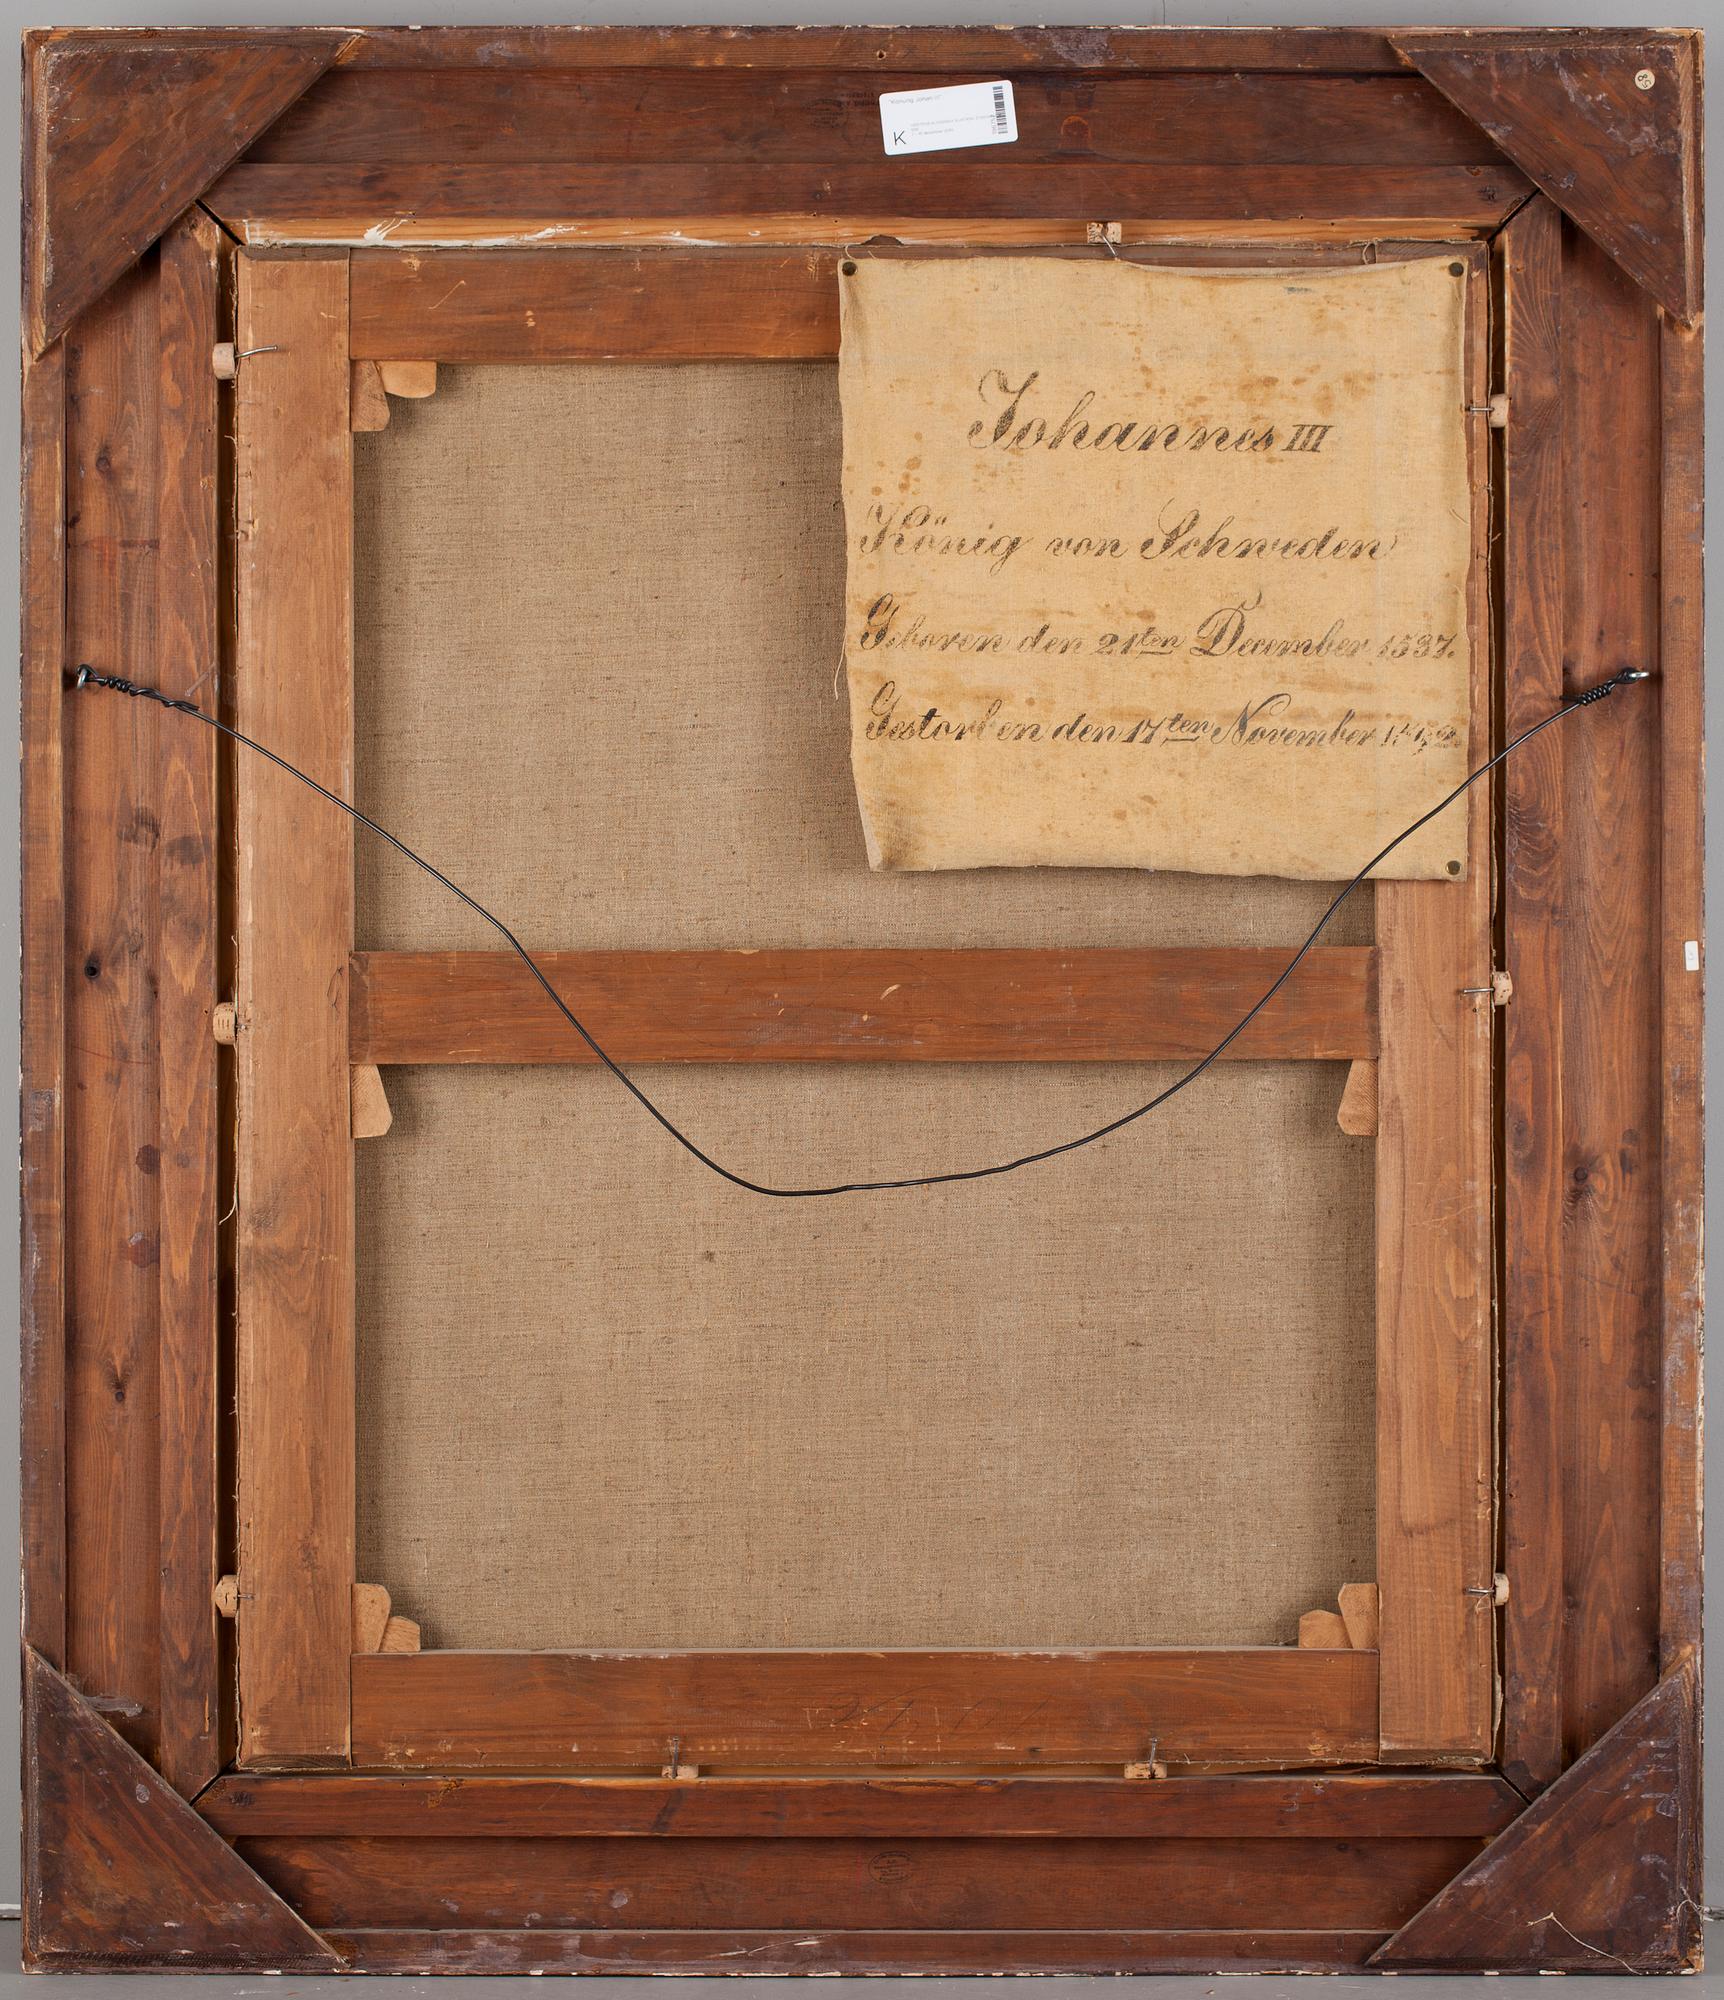 "Konung Johan III"
K
85
Johannes III
König von Schweden
Geboren den 21ten December 1537.
Gestorben den 17ten November 1592.